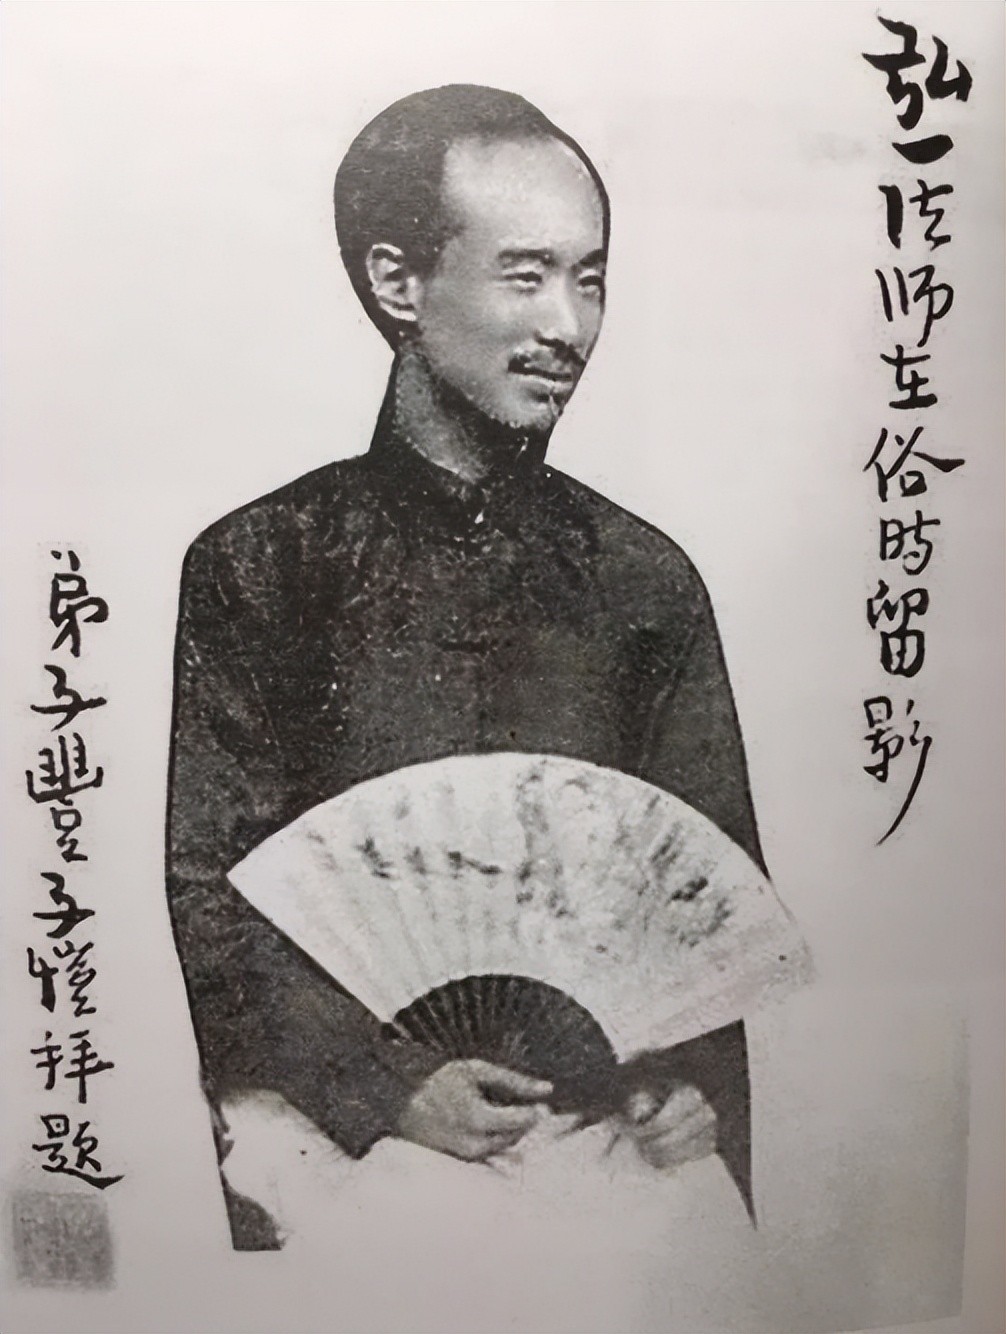 弘一法师在俗時留影
弟子豐子愷拜題